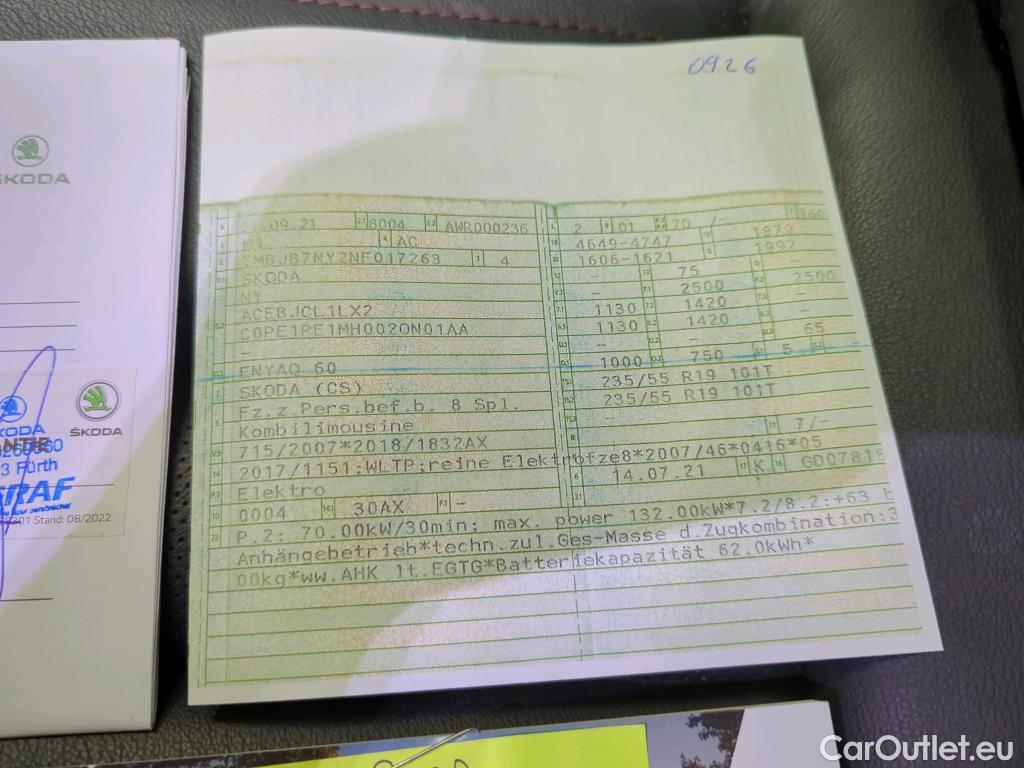 ŠKODA
ŠKODA
ŠKODA
ANTIE
3 Fürth
GRAF
Stand: 08/2022
09.26
09.21 8004 AWR000236
M1 AC
TMBJB7NY2NF017263 4
SKODA
NY
ACEBJCL1LX2
C0PE1PE1MH002ON01AA
-
ENYAQ 60
SKODA (CS)
Fz.z.Pers.bef.b. 8 Spl.
Kombilimousine
715/2007*2018/1832AX
2017/1151;WLTP;reine Elektrofz
Elektro
0004 30AX -
2 01 70 /- 160
4649-4747 1879
1606-1621 1992
- 75 -
- 2500 2500
1130 1420 -
1130 1420 -
- - 65
1000 750 5
235/55 R19 101T
235/55 R19 101T
7/-
e8*2007/46*0416*05
14.07.21 K GD07818
P.2: 70.00kW/30min; max. power 132.00kW*7.2/8.2:+63 b
Anhängebetrieb*techn.zul.Ges-Masse d.Zugkombination:3
00kg*ww.AHK lt.EGTG*Batteriekapazität 62.0kWh*
CarOutlet.eu